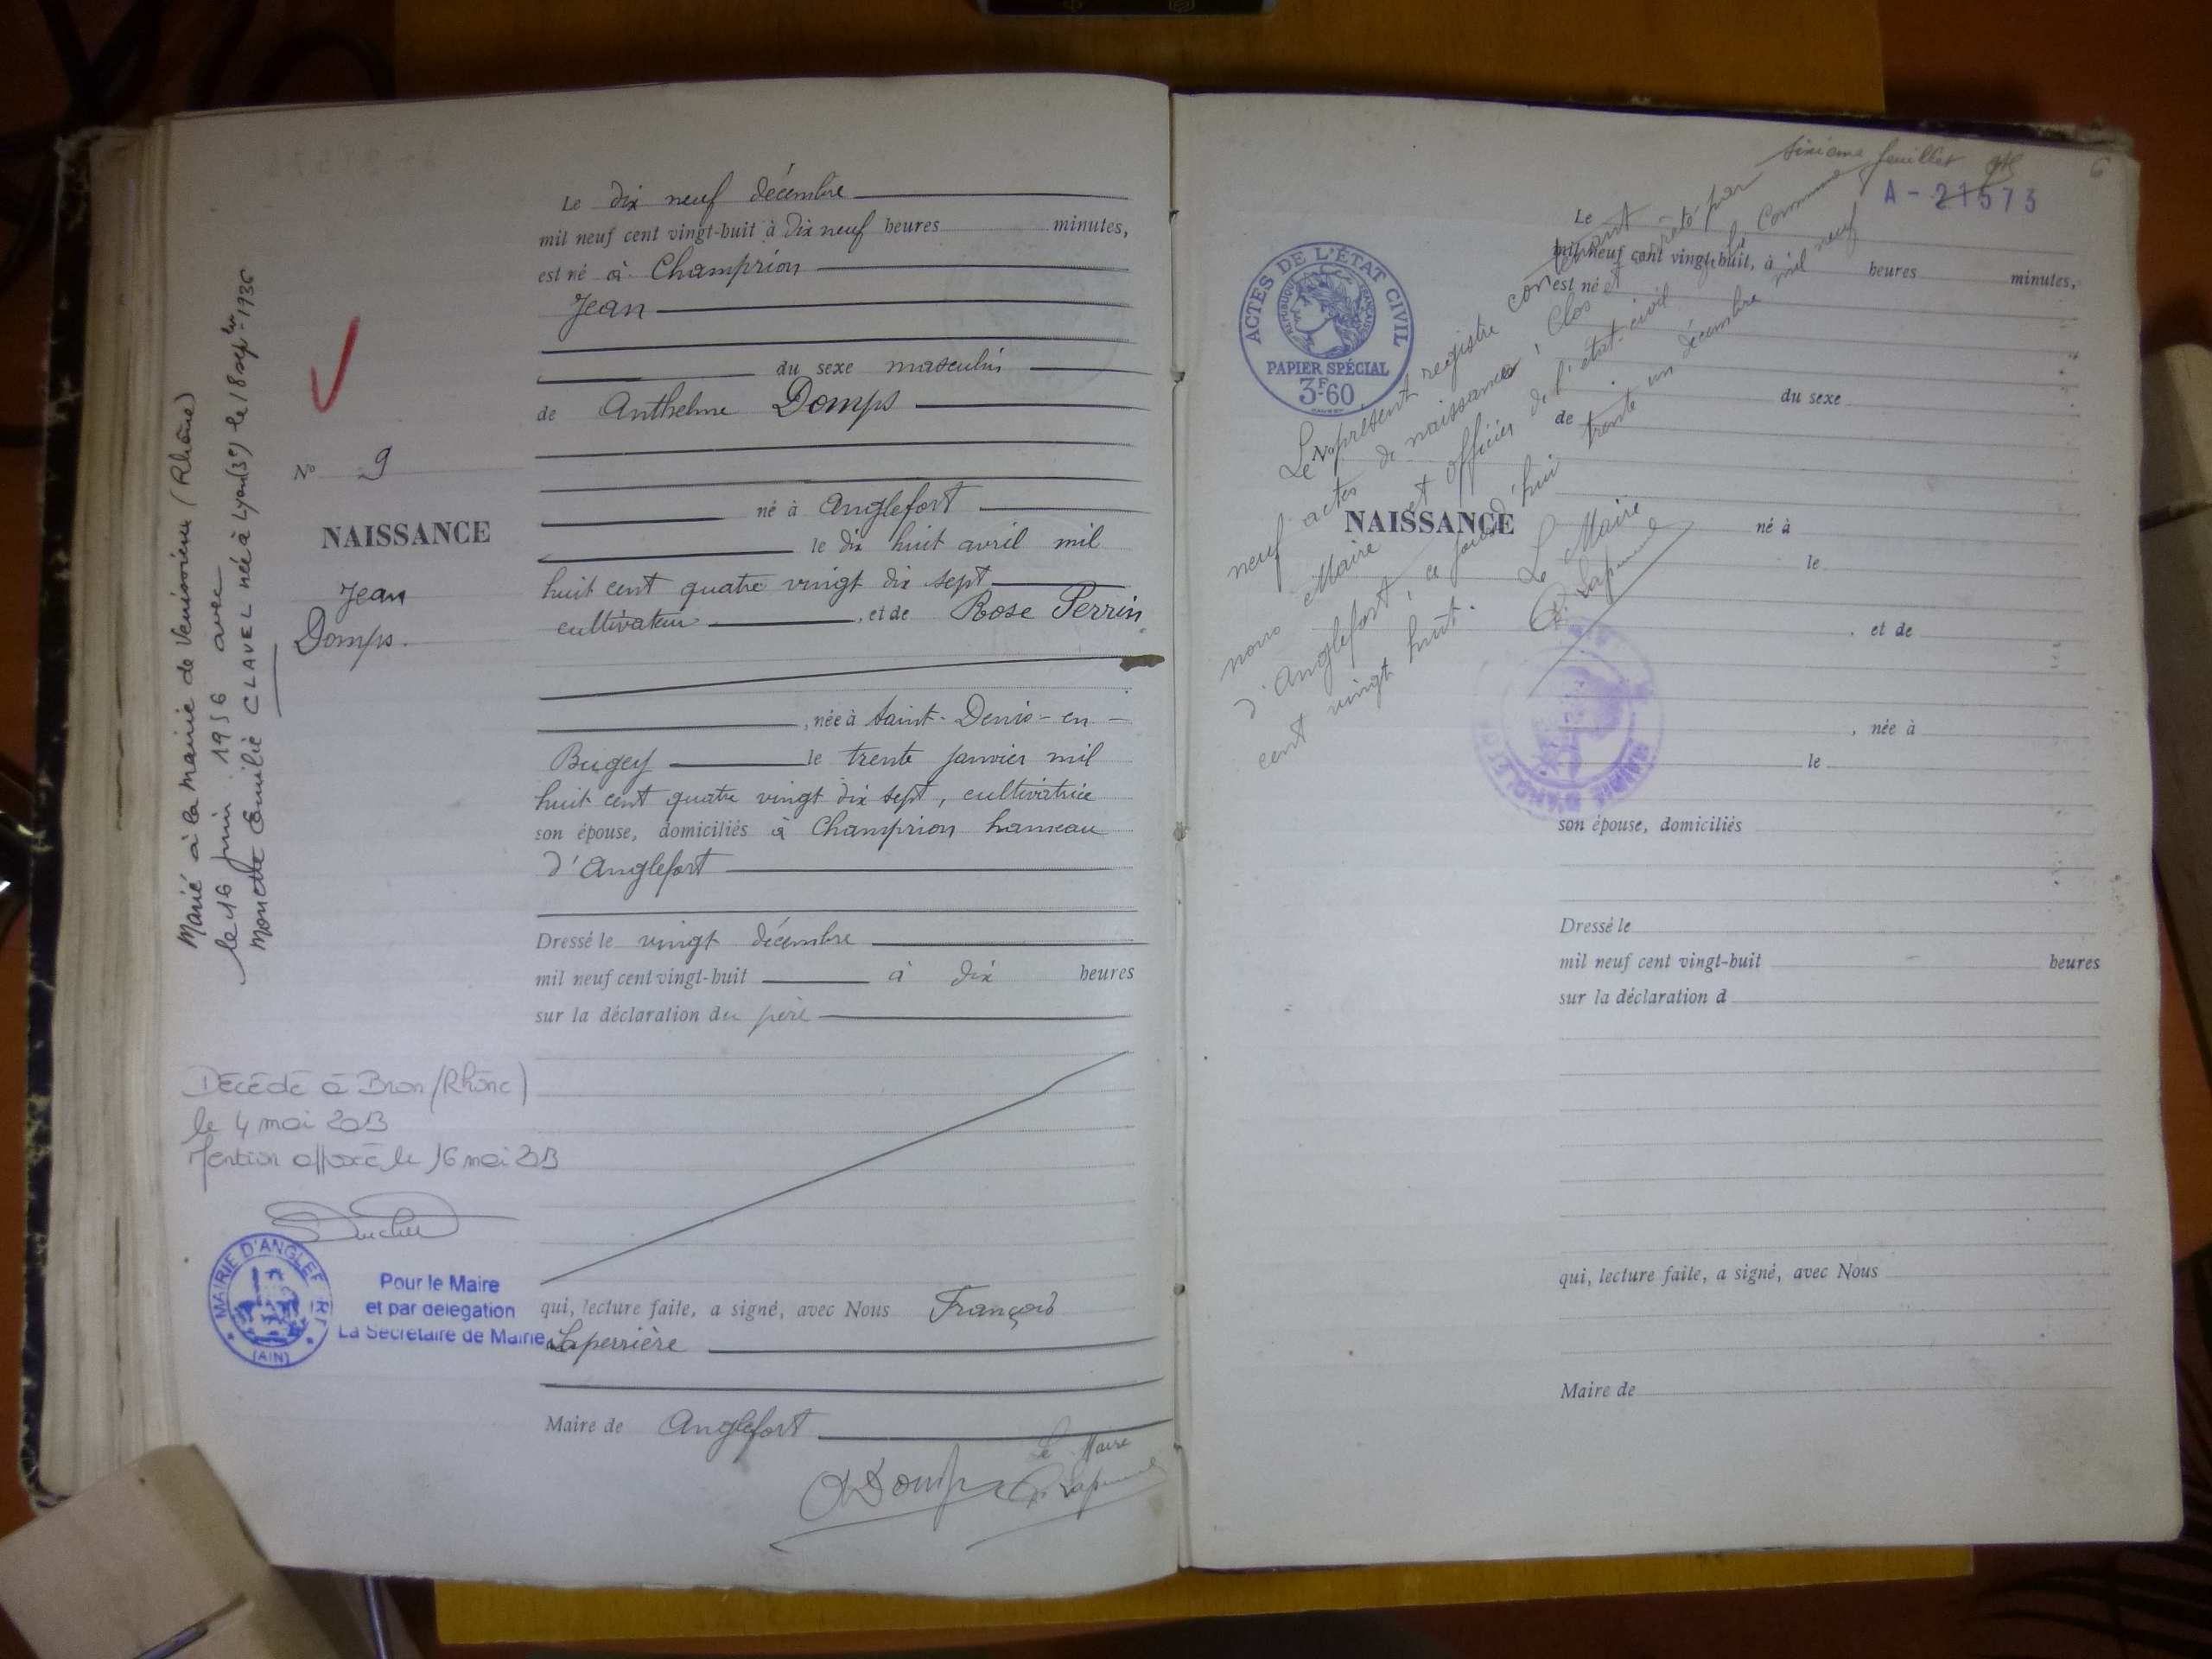 Le dix neuf décembre
mil neuf cent vingt-huit à dix neuf heures minutes,
est né à Champrion
Jean
du sexe masculin
de Anthelme Domps
né à Anglefort
le dix huit avril mil
huit cent quatre vingt dix sept
cultivateur , et de Rose Perrin
, née à Saint-Denis-en-
Bugey le trente janvier mil
huit cent quatre vingt dix sept, cultivatrice
son épouse, domiciliés à Champrion hameau
d'Anglefort
Dressé le vingt décembre
mil neuf cent vingt-huit à dix heures
sur la déclaration du père
qui, lecture faite, a signé, avec Nous François
Laperrière
Maire de Anglefort
Le Maire
ADomps
N° 9
NAISSANCE
Jean
Domps.
Marié à la mairie de Vénissieux (Rhône)
le 16 juin 1956 avec
Monette Emilie CLAVEL née à Lyon (3e) le 18 septbre 1936
Décédé à Bron (Rhône)
le 4 mai 2013
Mention apposée le 16 mai 2013
MAIRIE D'ANGLEFORT
(AIN)
Pour le Maire
et par délégation
La Secrétaire de Mairie
sixième feuillet
6
A - 21573
ACTES DE L'ÉTAT CIVIL
RÉPUBLIQUE FRANÇAISE
PAPIER SPÉCIAL
3F.60
Le présent registre contenant
neuf actes de naissance, Clos et arrêté par
nous Maire et officier de l'état-civil de la Commune
d'Anglefort, ce jourd'hui trente un décembre mil neuf
cent vingt huit.
Le Maire
Le
mil neuf cent vingt-huit, à heures minutes,
est né
du sexe
de
N°
NAISSANCE
né à
le
, et de
, née à
le
son épouse, domiciliés
Dressé le
mil neuf cent vingt-huit heures
sur la déclaration d
qui, lecture faite, a signé, avec Nous
Maire de